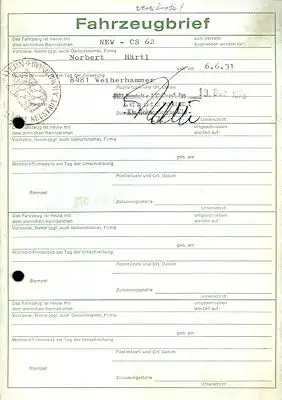 Fahrzeugbrief
Das Fahrzeug ist heute mit dem amtlichen Kennzeichen NEW - CS 62 zum Verkehr zugelassen worden für:
Vorname, Name (ggf. auch Geburtsname), Firma
Norbert Härtl
geb. am 6.6.31
8481 Weiherhammer
Postleitzahl und Ort, Datum
Unterschrift
Das Fahrzeug ist heute mit dem amtlichen Kennzeichen umgeschrieben worden auf:
Vorname, Name (ggf. auch Geburtsname), Firma
geb. am
Wohnort/Firmensitz am Tag der Umschreibung
Postleitzahl und Ort, Datum
Stempel
Zulassungsstelle
Unterschrift
Das Fahrzeug ist heute mit dem amtlichen Kennzeichen umgeschrieben worden auf:
Vorname, Name (ggf. auch Geburtsname), Firma
geb. am
Wohnort/Firmensitz am Tag der Umschreibung
Postleitzahl und Ort, Datum
Stempel
Zulassungsstelle
Unterschrift
Das Fahrzeug ist heute mit dem amtlichen Kennzeichen umgeschrieben worden auf:
Vorname, Name (ggf. auch Geburtsname), Firma
geb. am
Wohnort/Firmensitz am Tag der Umschreibung
Postleitzahl und Ort, Datum
Stempel
Zulassungsstelle
Unterschrift